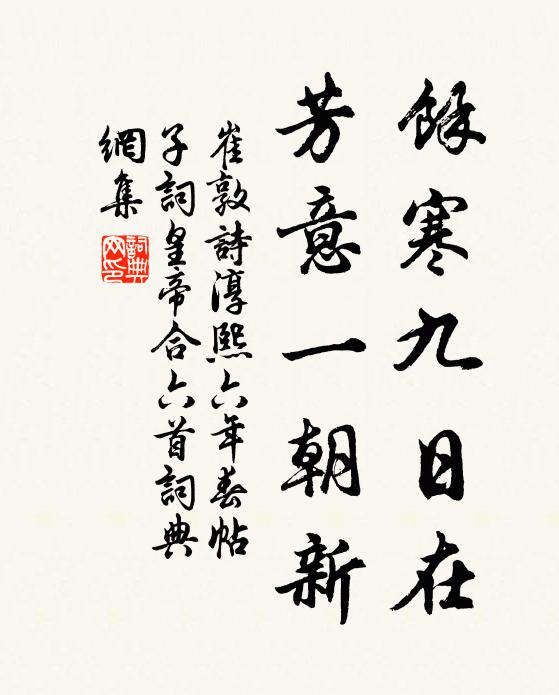 餘寒九日在
芳意一朝新
崔敦詩淳熙六年春帖
子詞皇帝合六首詞典
網集
詞典
网印